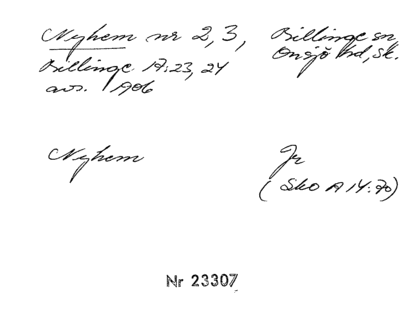 Nyhem nr 2, 3, Billinge sn
Billinge 17:23, 24 Onsjö hd, Sk.
avs. 1906
Nyhem Jr
(Sko A 14:70)
Nr 23307